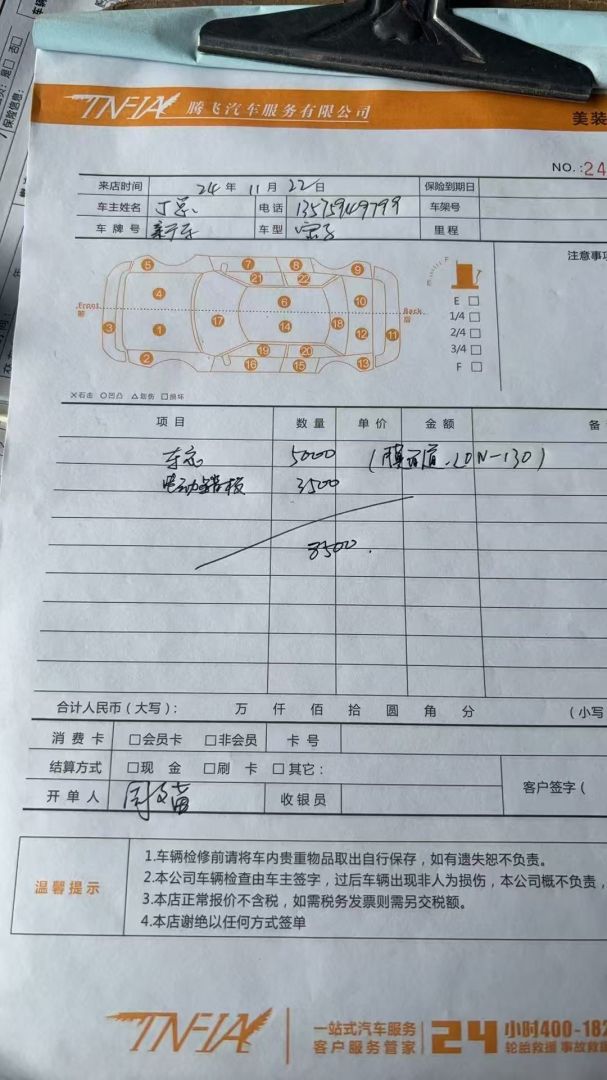 TNFIA 腾飞汽车服务有限公司 美装
NO.:24
来店时间 24 年 11 月 22 日 保险到期日
车主姓名 丁 电话 13575949799 车架号
车牌号 新车 车型 里程
注意事项
Front
前
Back
后
5 7 8 9
21 22
4 6 10
3 1 17 14 18 12 11
19 20
2 16 15 13
E □
1/4 □
2/4 □
3/4 □
F □
×石击 ○凹凸 △划伤 □损坏
项目 数量 单价 金额 备
5000
电动踏板 3500
8500.
合计人民币(大写): 万 仟 佰 拾 圆 角 分 (小写
消费卡 □会员卡 □非会员 卡号
结算方式 □现 金 □刷 卡 □其它:
客户签字(
开单人 周 收银员
温馨提示
1.车辆检修前请将车内贵重物品取出自行保存，如有遗失恕不负责。
2.本公司车辆检查由车主签字，过后车辆出现非人为损伤，本公司概不负责，
3.本店正常报价不含税，如需税务发票则需另交税额。
4.本店谢绝以任何方式签单
TNFIA 一站式汽车服务 24 小时400-182
客户服务管家 轮胎救援 事故救援